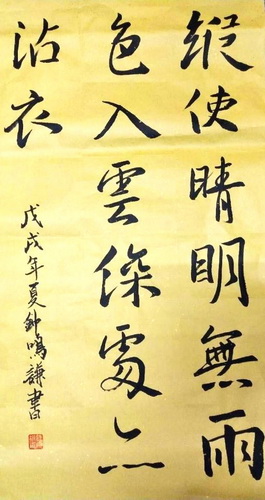 縱使晴明無雨
色入雲深處亦
沾衣
戊戌年夏鍾鳴謙書